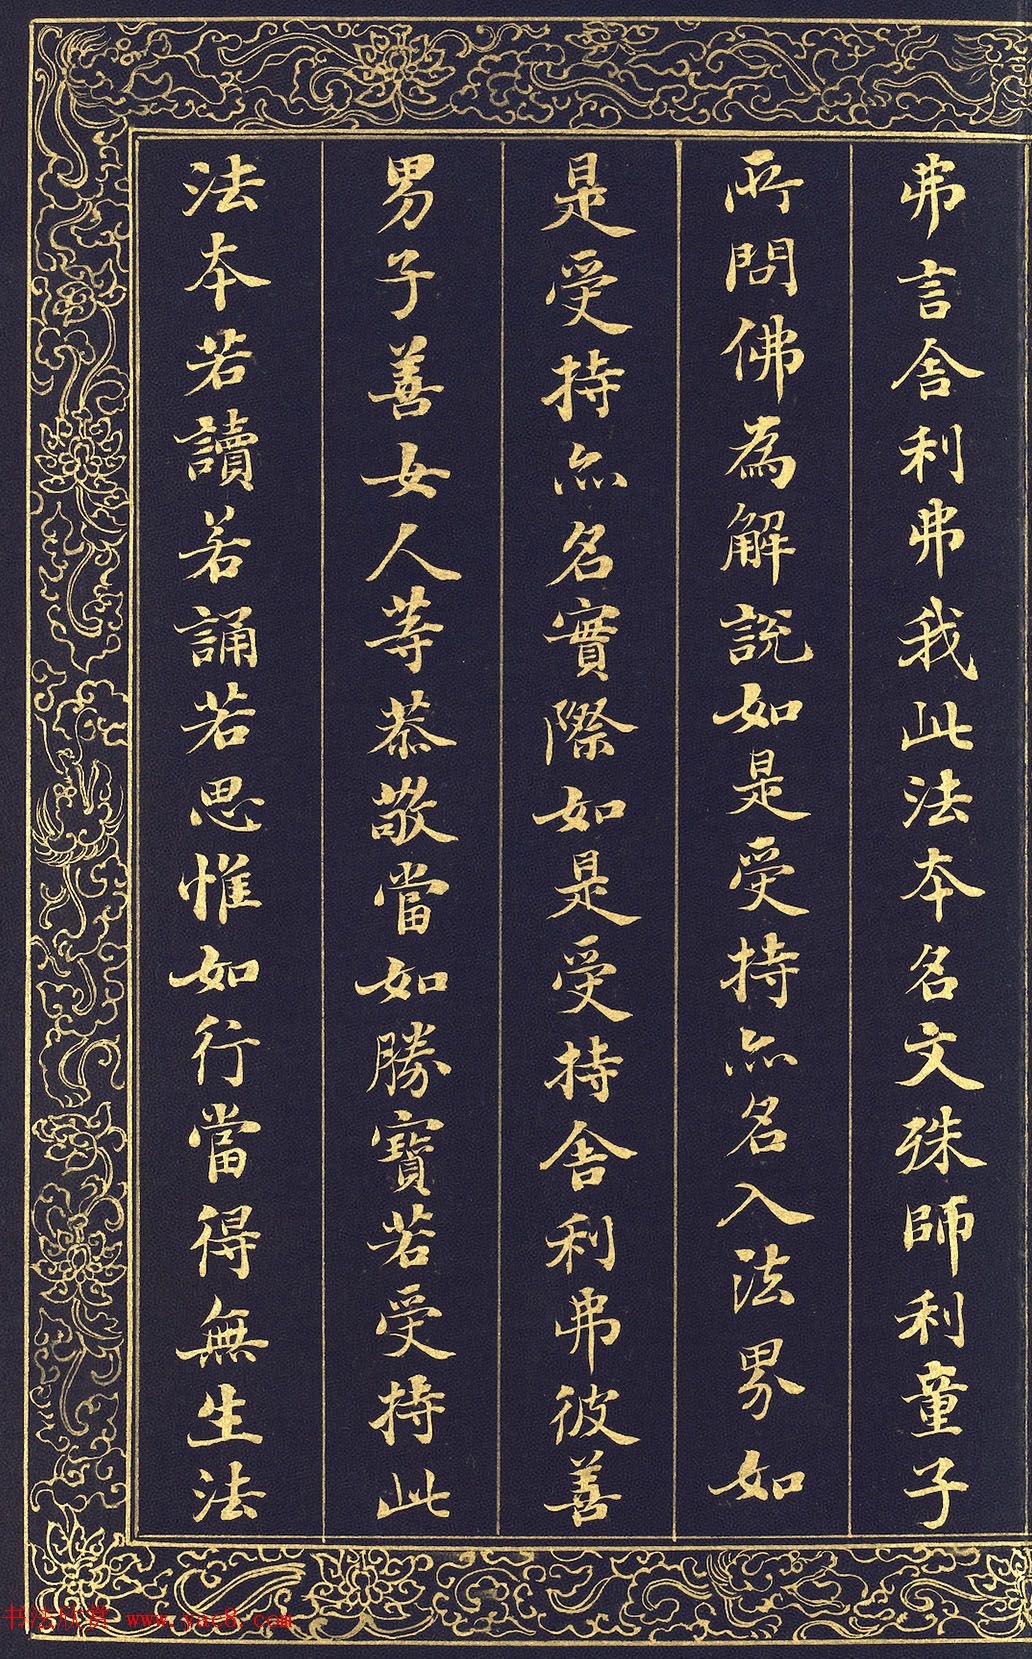 弗言舍利弗我此法本名文殊師利童子
所問佛為解說如是受持亦名入法界如
是受持亦名實際如是受持舍利弗彼善
男子善女人等恭敬當如勝寶若受持此
法本若讀若誦若思惟如行當得無生法
书法欣赏 www.yac8.com